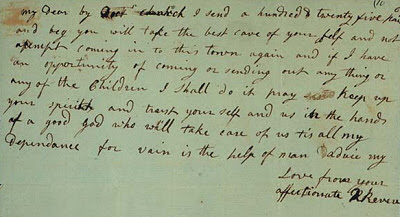 my Dear by I send a hundred & twenty five
and beg you will take the best care of your self and not
attempt coming in to this town again and if I have
an opportunity of coming or sending out any thing or
any of the Children I shall do it pray keep up
your spirits and trust your self and us in the hands
of a good god who will take care of us tis all my
dependance for vain is the help of man aduie my
Love from your
affectionate R Revere